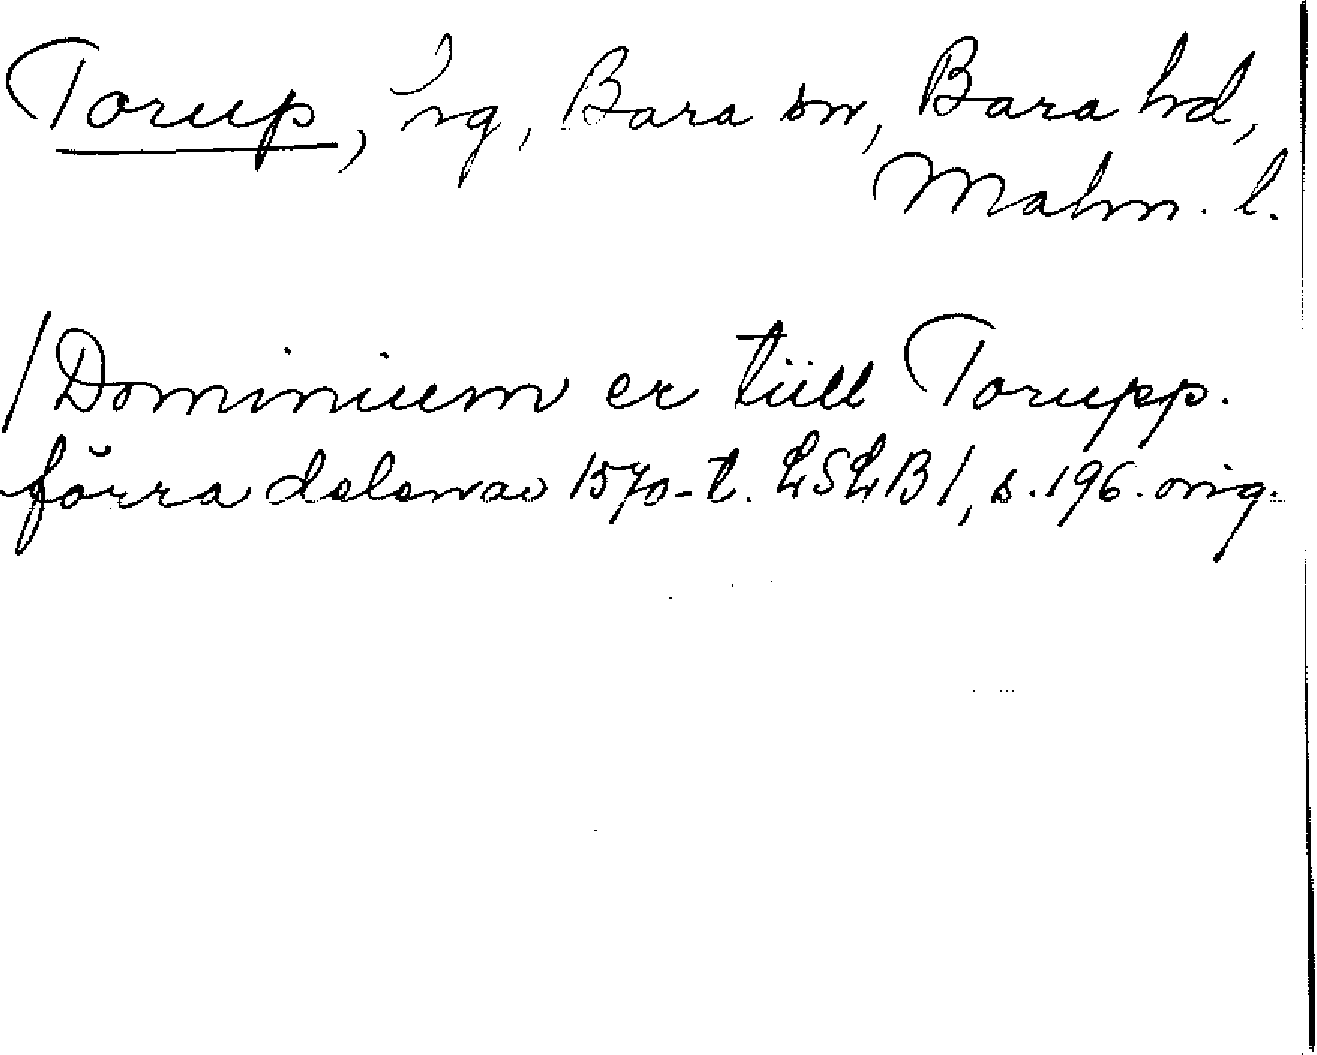 Torup, rg, Bara sn, Bara hd,
Malm. l.
/Dominium er tiill Torupp.
förra delen av 1570-t. LSLB1, s. 196. orig.